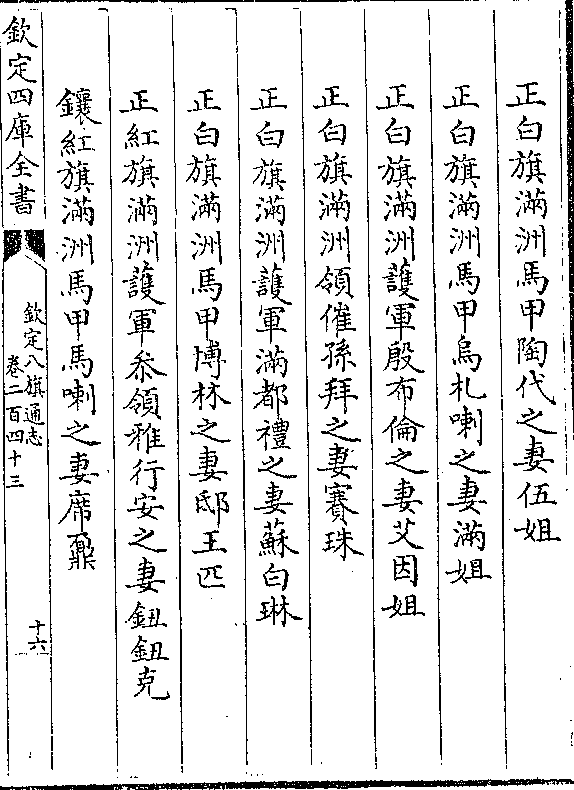 正白旗滿洲馬甲陶代之妻伍姐
正白旗滿洲馬甲烏札喇之妻滿姐
正白旗滿洲護軍殷布倫之妻艾因姐
正白旗滿洲領催孫拜之妻賽珠
正白旗滿洲護軍滿都禮之妻蘇白琳
正白旗滿洲馬甲博林之妻邸王匹
正紅旗滿洲護軍叅領雅行安之妻鈕鈕克
鑲紅旗滿洲馬甲馬喇之妻席鼐
欽定四庫全書
欽定八旗通志
卷二百四十三
十六